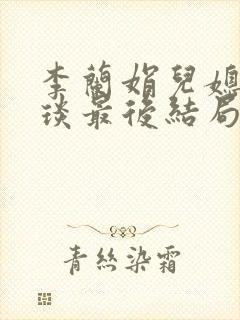 李蘭娟兒媳
琰最後結局
青絲染霜